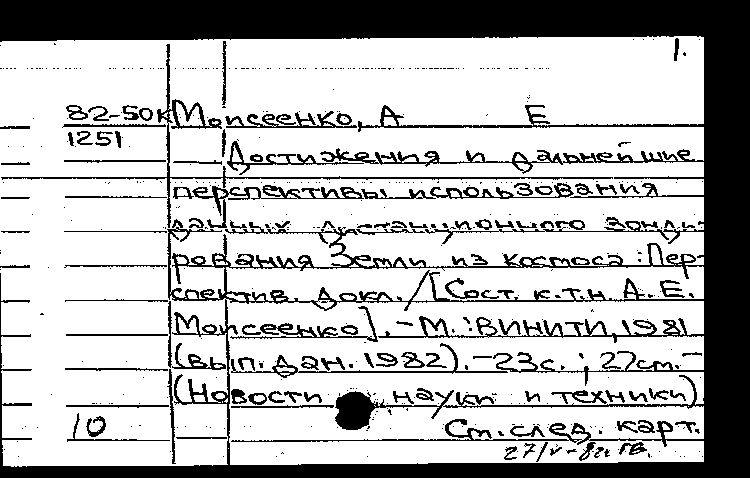 1.
82-50к Моисеенко, А Е
1251
Достижения и дальнейшие
перспективы использования
данных дистанционного зонди-
рования Земли из космоса : Пер-
спектив. докл. / [Сост. к.т.н. А. Е.
Моисеенко]. - М. : ВИНИТИ, 1981
(вып. дан. 1982). - 23с. ; 27см. -
(Новости науки и техники)
10 См. след. карт.